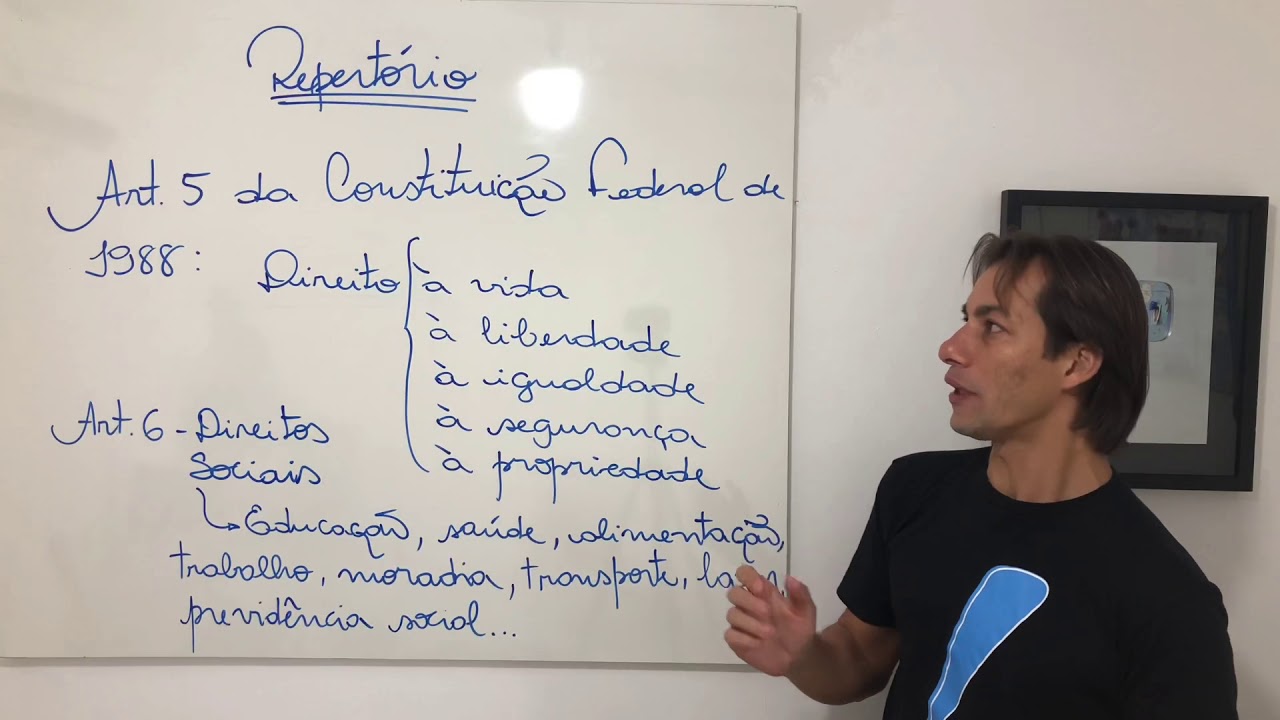 Repertório
Art. 5 da Constituição Federal de
1988: Direito { à vida
à liberdade
à igualdade
à segurança
à propriedade
Art. 6 - Direitos
Sociais
↳ Educação, saúde, alimentação,
trabalho, moradia, transporte,
previdência social...